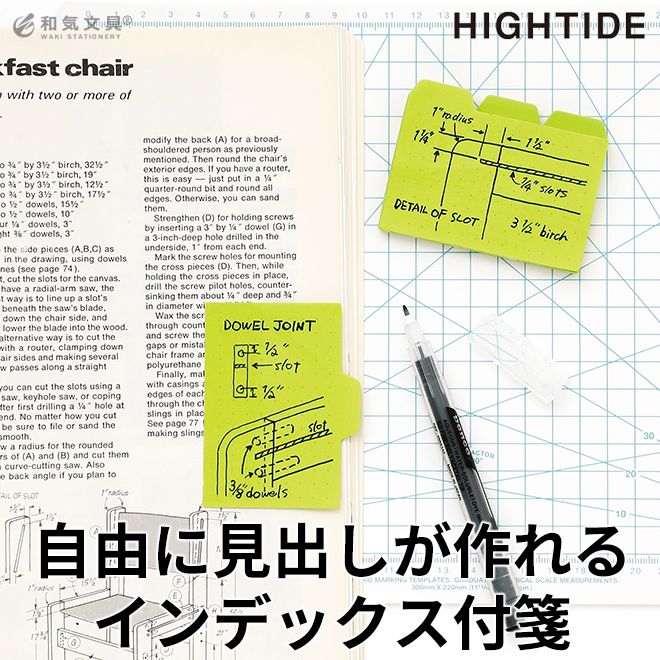 和気文具®
WAKI STATIONERY
HIGHTIDE
kfast chair
with two or more of
to ¾" by 3½" birch, 32½"
to ¾" by 3½" birch, 19"
to ¾" by 3½" birch, 12½"
to ¾" by 3½" birch, 17½"
½" dowels, 15½"
½" dowels, 10"
¼" dowels, 3"
⅜" dowels, 3"
side pieces (A,B,C) as
in the drawing, using dowels
(see page 74).
, cut the slots for the canvas.
have a radial-arm saw, the
way is to line up a slot's
beneath the saw's blade,
down the chair side, and
lower the blade into the wood.
alternative way is to cut the
with a router, clamping down
sides and making several
passes along a straight
you can cut the slots using a
saw, keyhole saw, or coping
first drilling a ¼" hole at
end. No matter how you cut
be sure to file or sand the
smooth.
a radius for the rounded
of (A) and (B) and cut them
curve-cutting saw. Also
back angle if you plan to
modify the back (A) for a broad-
shouldered person as previously
mentioned. Then round the chair's
exterior edges. If you have a router,
this is easy — just put in a ¼"
quarter-round bit and round all
edges. Otherwise, you can sand
them.
Strengthen (D) for holding screws
by inserting a 3" by ¼" dowel (G) in
a 3-inch-deep hole drilled in the
underside, 1" from each end.
Mark the screw holes for mounting
the cross pieces (D). Then, while
holding the cross pieces in place,
drill the screw pilot holes, counter-
sinking them about ¼" deep and ¾"
in diameter
Wax the
through
and screw the
gaps or
chair frame
polyurethane
Finally,
with casings
edges of each
through the
slings in place
See page 77
making slings
1"radius
1½"
1¼"
¼" slots
DETAIL OF SLOT
3½"birch
DOWEL JOINT
½"
slot
½"
slot
⅜"dowels
DETAIL OF SLOT
1"radius
自由に見出しが作れる
インデックス付箋
300mm x 220mm